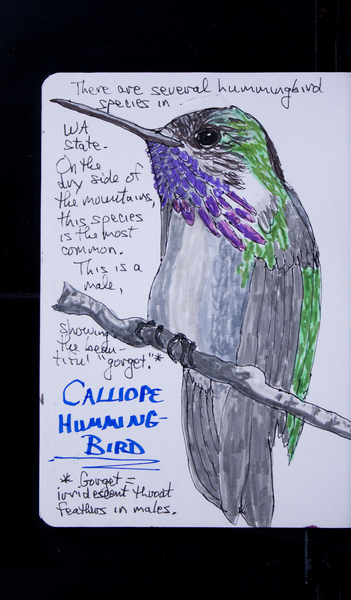 There are several hummingbird
species in
WA
state.
On the
dry side of
the mountains,
this species
is the most
common.
This is a
male,
showing
the beau-
tiful "gorget."*
CALLIOPE
HUMMING-
BIRD
* Gorget =
irridescent throat
feathers in males.